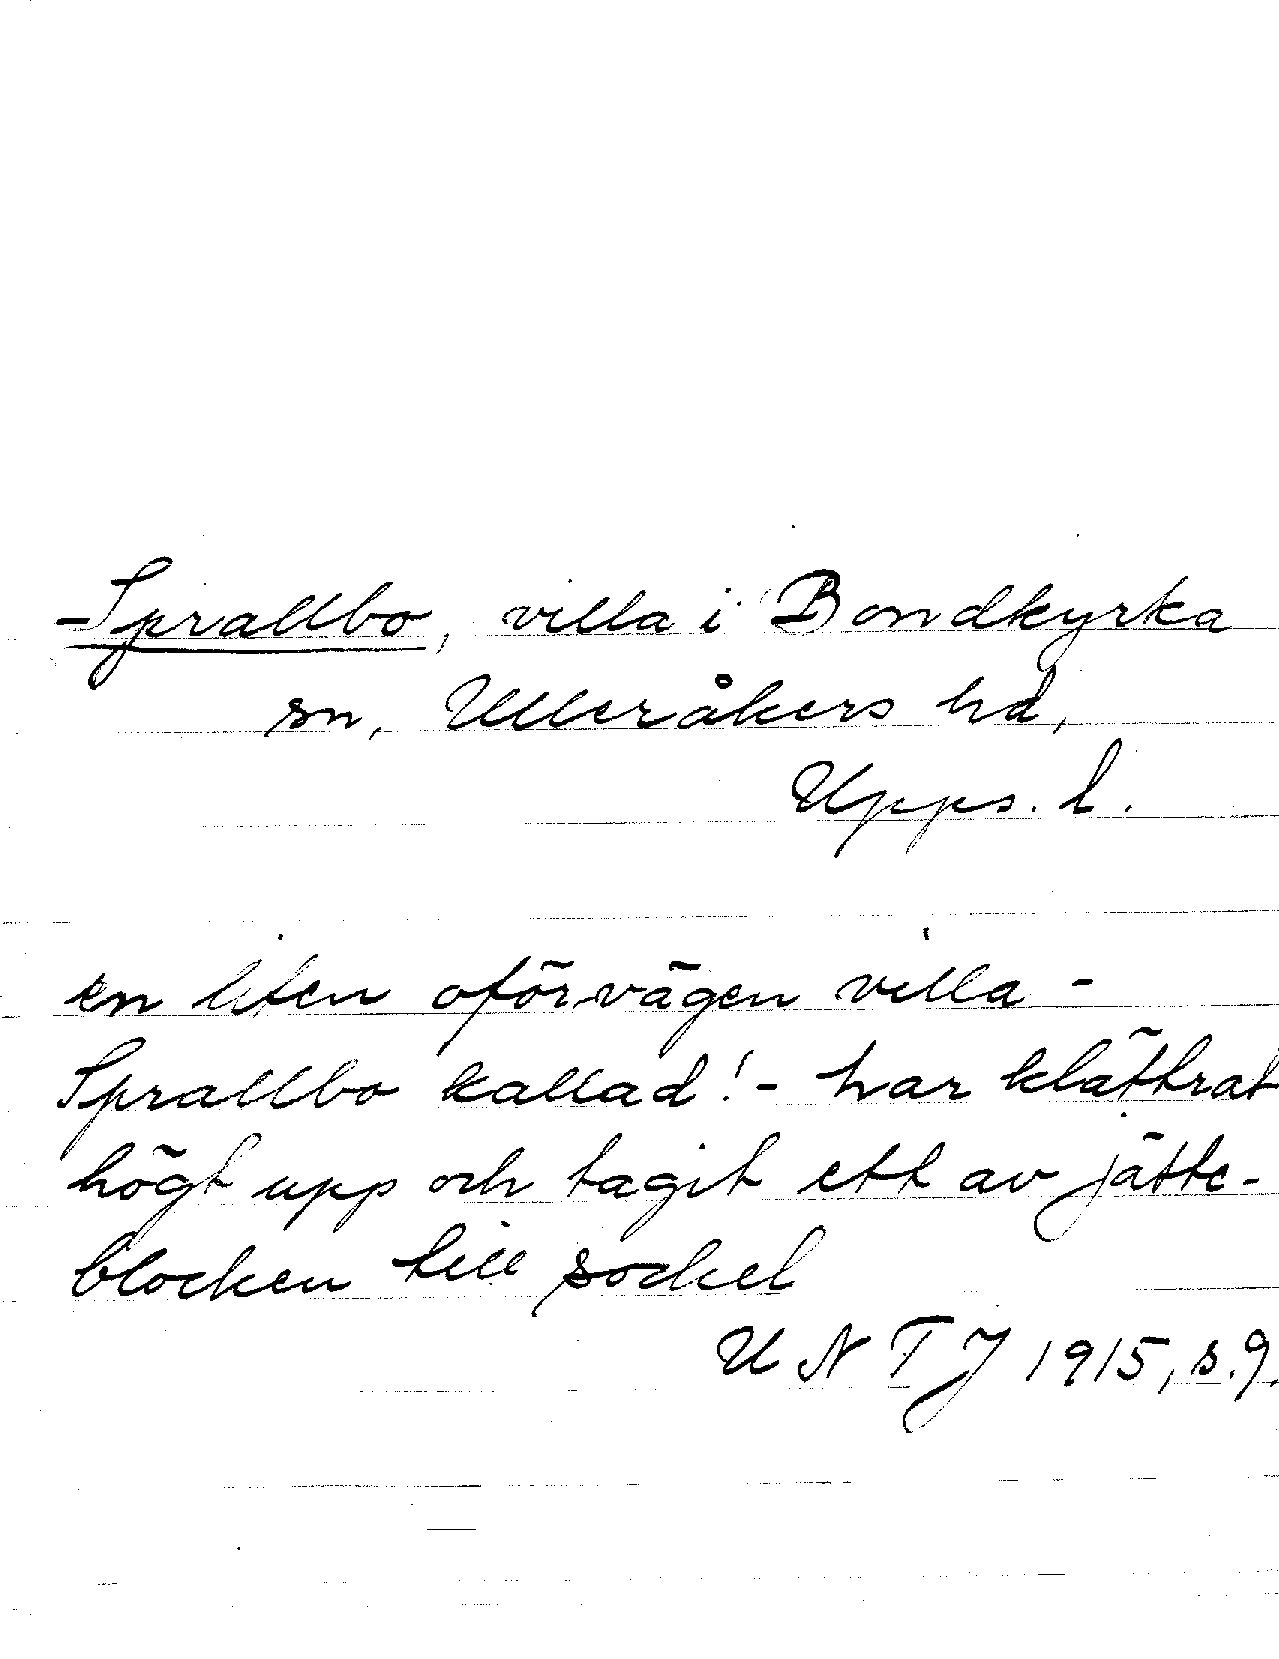 -Sprallbo, villa i Bondkyrka
sn, Ulleråkers hd,
Upps. l.
en liten oförvägen villa -
Sprallbo kallad! - har klättrat
högt upp och tagit ett av jätte-
blocken till sockel
UNTJ 1915, s. 9.